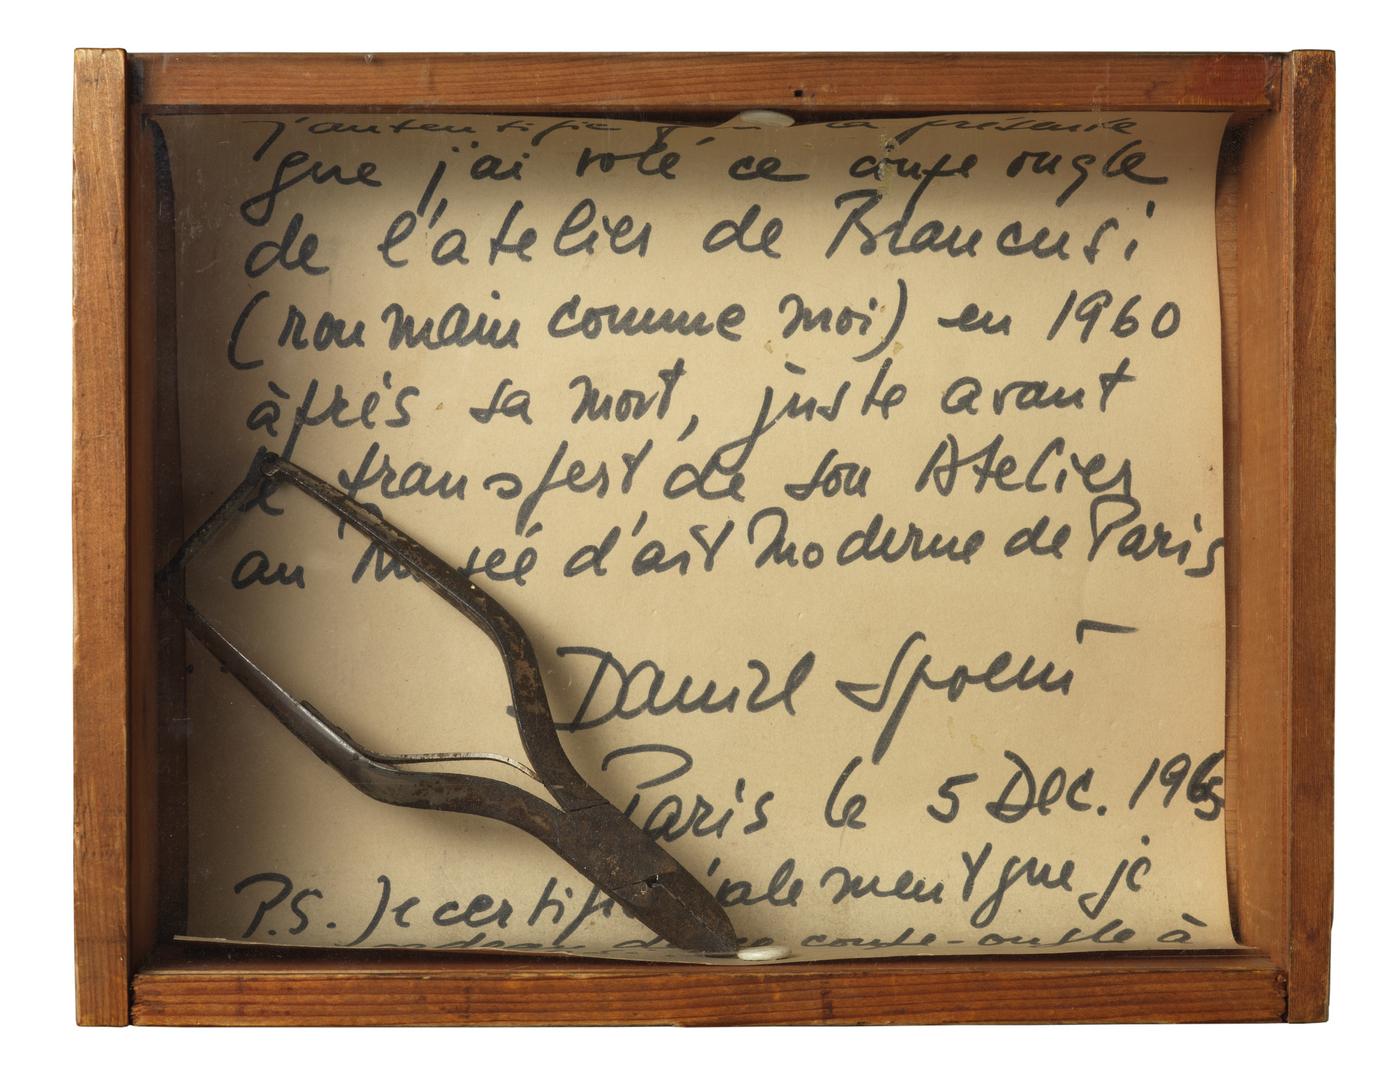 j'autentifie par la présente
que j'ai volé ce coupe ongle
de l'atelier de Brancusi
(roumain comme moi) en 1960
àprés sa mort, juste avant
le transfert de son Atelier
au Musée d'art Moderne de Paris
Daniel Spoerri
Paris le 5 Dec. 1965
P.S. Je certifie également que je
coupe-ongle à